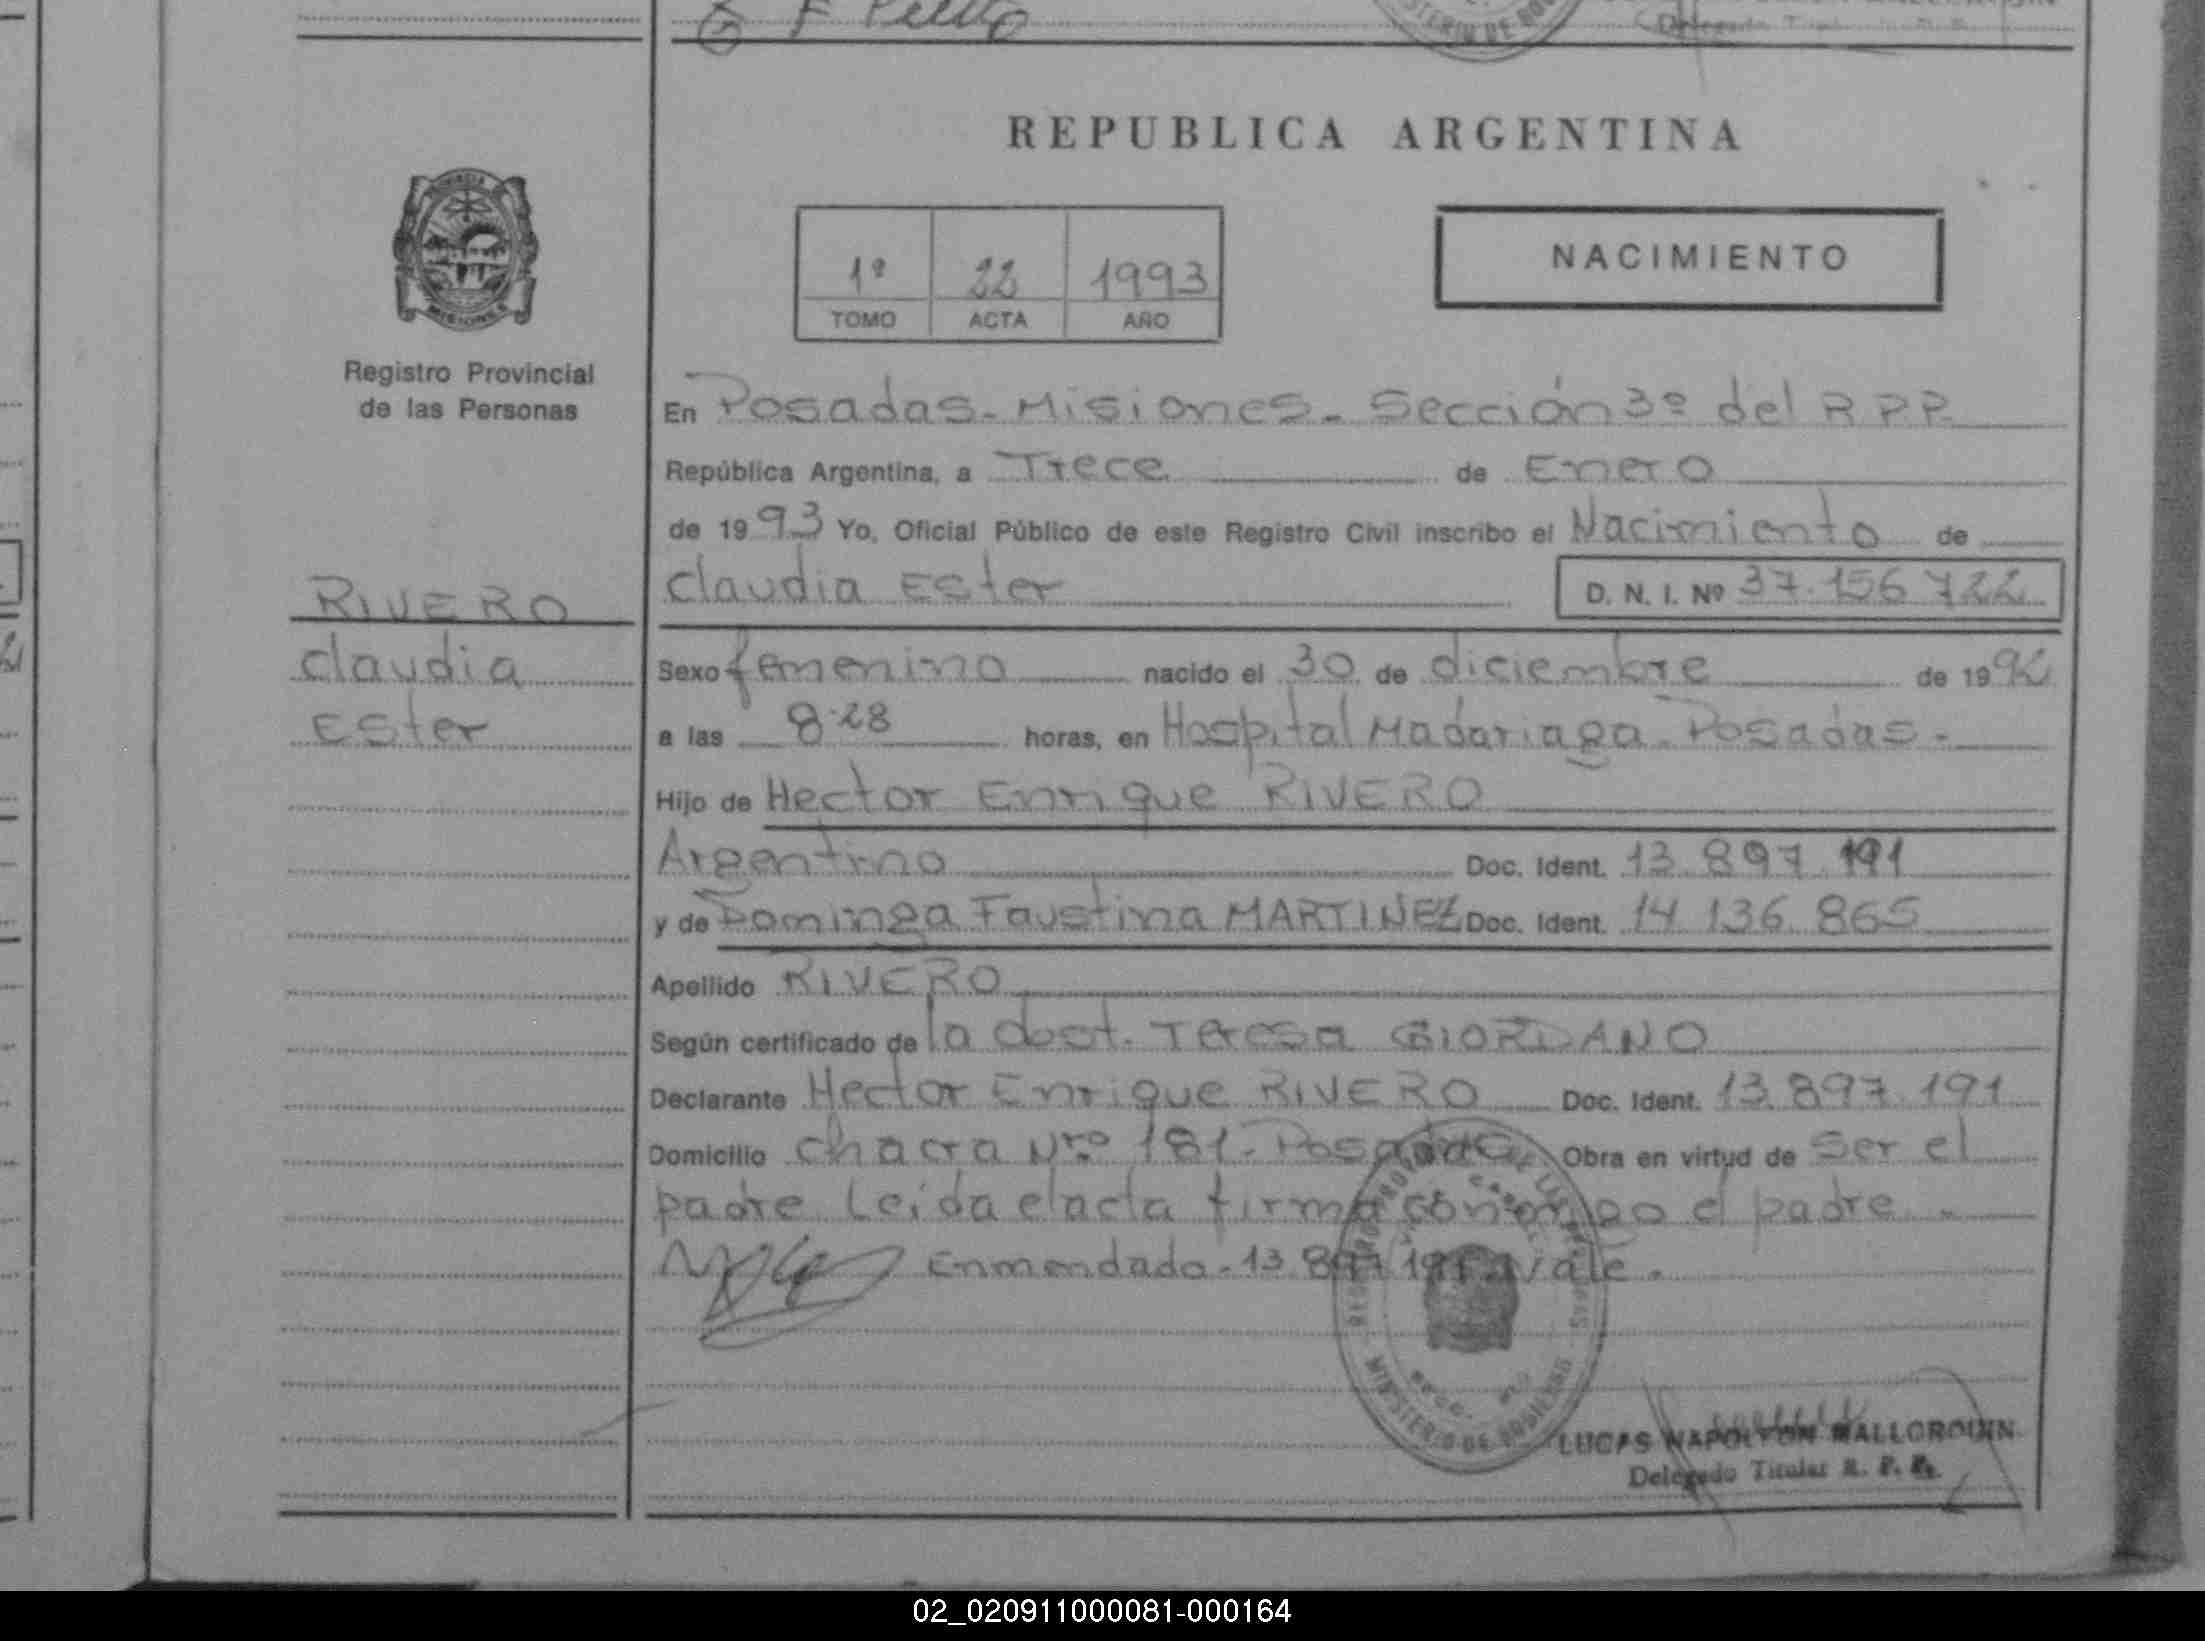 F
REPUBLICA ARGENTINA
1º 22 1993
TOMO ACTA AÑO
NACIMIENTO
MISIONES
Registro Provincial
de las Personas
En Posadas - Misiones - Sección 3º del R P P.
República Argentina, a Trece de Enero
de 1993 Yo, Oficial Público de este Registro Civil inscribo el Nacimiento de
Claudia Ester D. N. I. Nº 37.156 722
RIVERO
Claudia
Ester
Sexo femenino nacido el 30 de diciembre de 1992
a las 8.28 horas, en Hospital Madariaga. Posadas -
Hijo de Hector Enrique RIVERO
Argentino Doc. Ident. 13.897.191
y de Dominga Faustina MARTINEZ Doc. Ident. 14 136 865
Apellido RIVERO
Según certificado de la doct. Teresa GIORDANO
Declarante Hector Enrique RIVERO Doc. Ident. 13.897.191
Domicilio Chacra Nro 181 - Posadas Obra en virtud de ser el
padre Leida el acta firma conmigo el padre -
Enmendado - 13.897 191 vale.
MINISTERIO DE GOBIERNO
LUCAS NAPOLEON MALLORQUIN
Delegado Titular R. P. P.
02_020911000081-000164